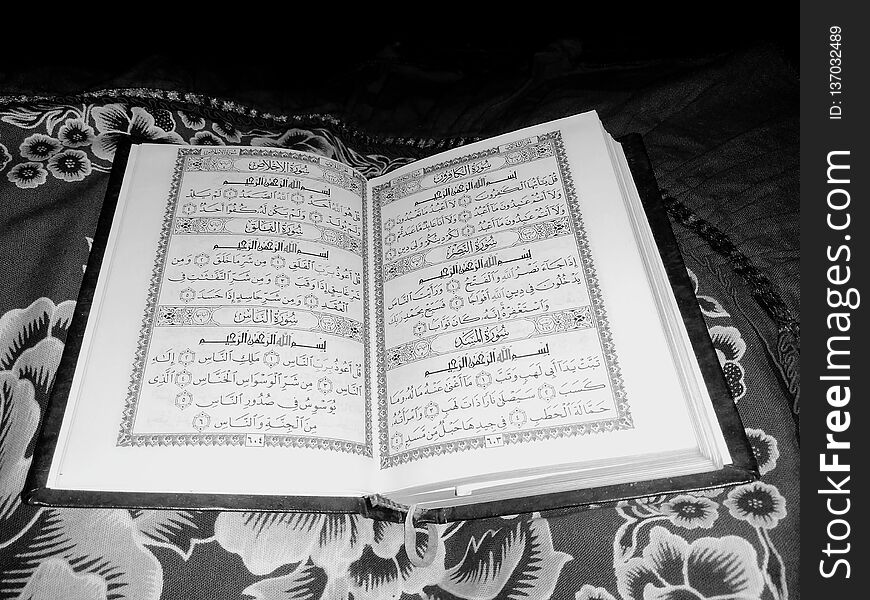 سُورَةُ الكَافِرُونَ
بِسْمِ اللَّهِ الرَّحْمَٰنِ الرَّحِيمِ
قُلْ يَٰٓأَيُّهَا ٱلْكَٰفِرُونَ ١ لَآ أَعْبُدُ مَا تَعْبُدُونَ ٢
وَلَآ أَنتُمْ عَٰبِدُونَ مَآ أَعْبُدُ ٣ وَلَآ أَنَا۠ عَابِدٌ مَّا عَبَدتُّمْ ٤
وَلَآ أَنتُمْ عَٰبِدُونَ مَآ أَعْبُدُ ٥ لَكُمْ دِينُكُمْ وَلِيَ دِينِ ٦
سُورَةُ النَّصْرِ
بِسْمِ اللَّهِ الرَّحْمَٰنِ الرَّحِيمِ
إِذَا جَآءَ نَصْرُ ٱللَّهِ وَٱلْفَتْحُ ١ وَرَأَيْتَ ٱلنَّاسَ
يَدْخُلُونَ فِي دِينِ ٱللَّهِ أَفْوَاجًا ٢ فَسَبِّحْ بِحَمْدِ رَبِّكَ
وَٱسْتَغْفِرْهُ إِنَّهُۥ كَانَ تَوَّابًۢا ٣
سُورَةُ المَسَدِ
بِسْمِ اللَّهِ الرَّحْمَٰنِ الرَّحِيمِ
تَبَّتْ يَدَآ أَبِي لَهَبٍ وَتَبَّ ١ مَآ أَغْنَىٰ عَنْهُ مَالُهُۥ وَمَا
كَسَبَ ٢ سَيَصْلَىٰ نَارًا ذَاتَ لَهَبٍ ٣ وَٱمْرَأَتُهُۥ
حَمَّالَةَ ٱلْحَطَبِ ٤ فِي جِيدِهَا حَبْلٌ مِّن مَّسَدٍۭ ٥
٦٠٣
سُورَةُ الإِخْلَاصِ
بِسْمِ اللَّهِ الرَّحْمَٰنِ الرَّحِيمِ
قُلْ هُوَ ٱللَّهُ أَحَدٌ ١ ٱللَّهُ ٱلصَّمَدُ ٢ لَمْ يَلِدْ
وَلَمْ يُولَدْ ٣ وَلَمْ يَكُن لَّهُۥ كُفُوًا أَحَدٌۢ ٤
سُورَةُ الفَلَقِ
بِسْمِ اللَّهِ الرَّحْمَٰنِ الرَّحِيمِ
قُلْ أَعُوذُ بِرَبِّ ٱلْفَلَقِ ١ مِن شَرِّ مَا خَلَقَ ٢ وَمِن
شَرِّ غَاسِقٍ إِذَا وَقَبَ ٣ وَمِن شَرِّ ٱلنَّفَّٰثَٰتِ فِي
ٱلْعُقَدِ ٤ وَمِن شَرِّ حَاسِدٍ إِذَا حَسَدَ ٥
سُورَةُ النَّاسِ
بِسْمِ اللَّهِ الرَّحْمَٰنِ الرَّحِيمِ
قُلْ أَعُوذُ بِرَبِّ ٱلنَّاسِ ١ مَلِكِ ٱلنَّاسِ ٢ إِلَٰهِ
ٱلنَّاسِ ٣ مِن شَرِّ ٱلْوَسْوَاسِ ٱلْخَنَّاسِ ٤ ٱلَّذِي
يُوَسْوِسُ فِي صُدُورِ ٱلنَّاسِ ٥
مِنَ ٱلْجِنَّةِ وَٱلنَّاسِ ٦
٦٠٤
ID: 137032489
StockFreeImages.com